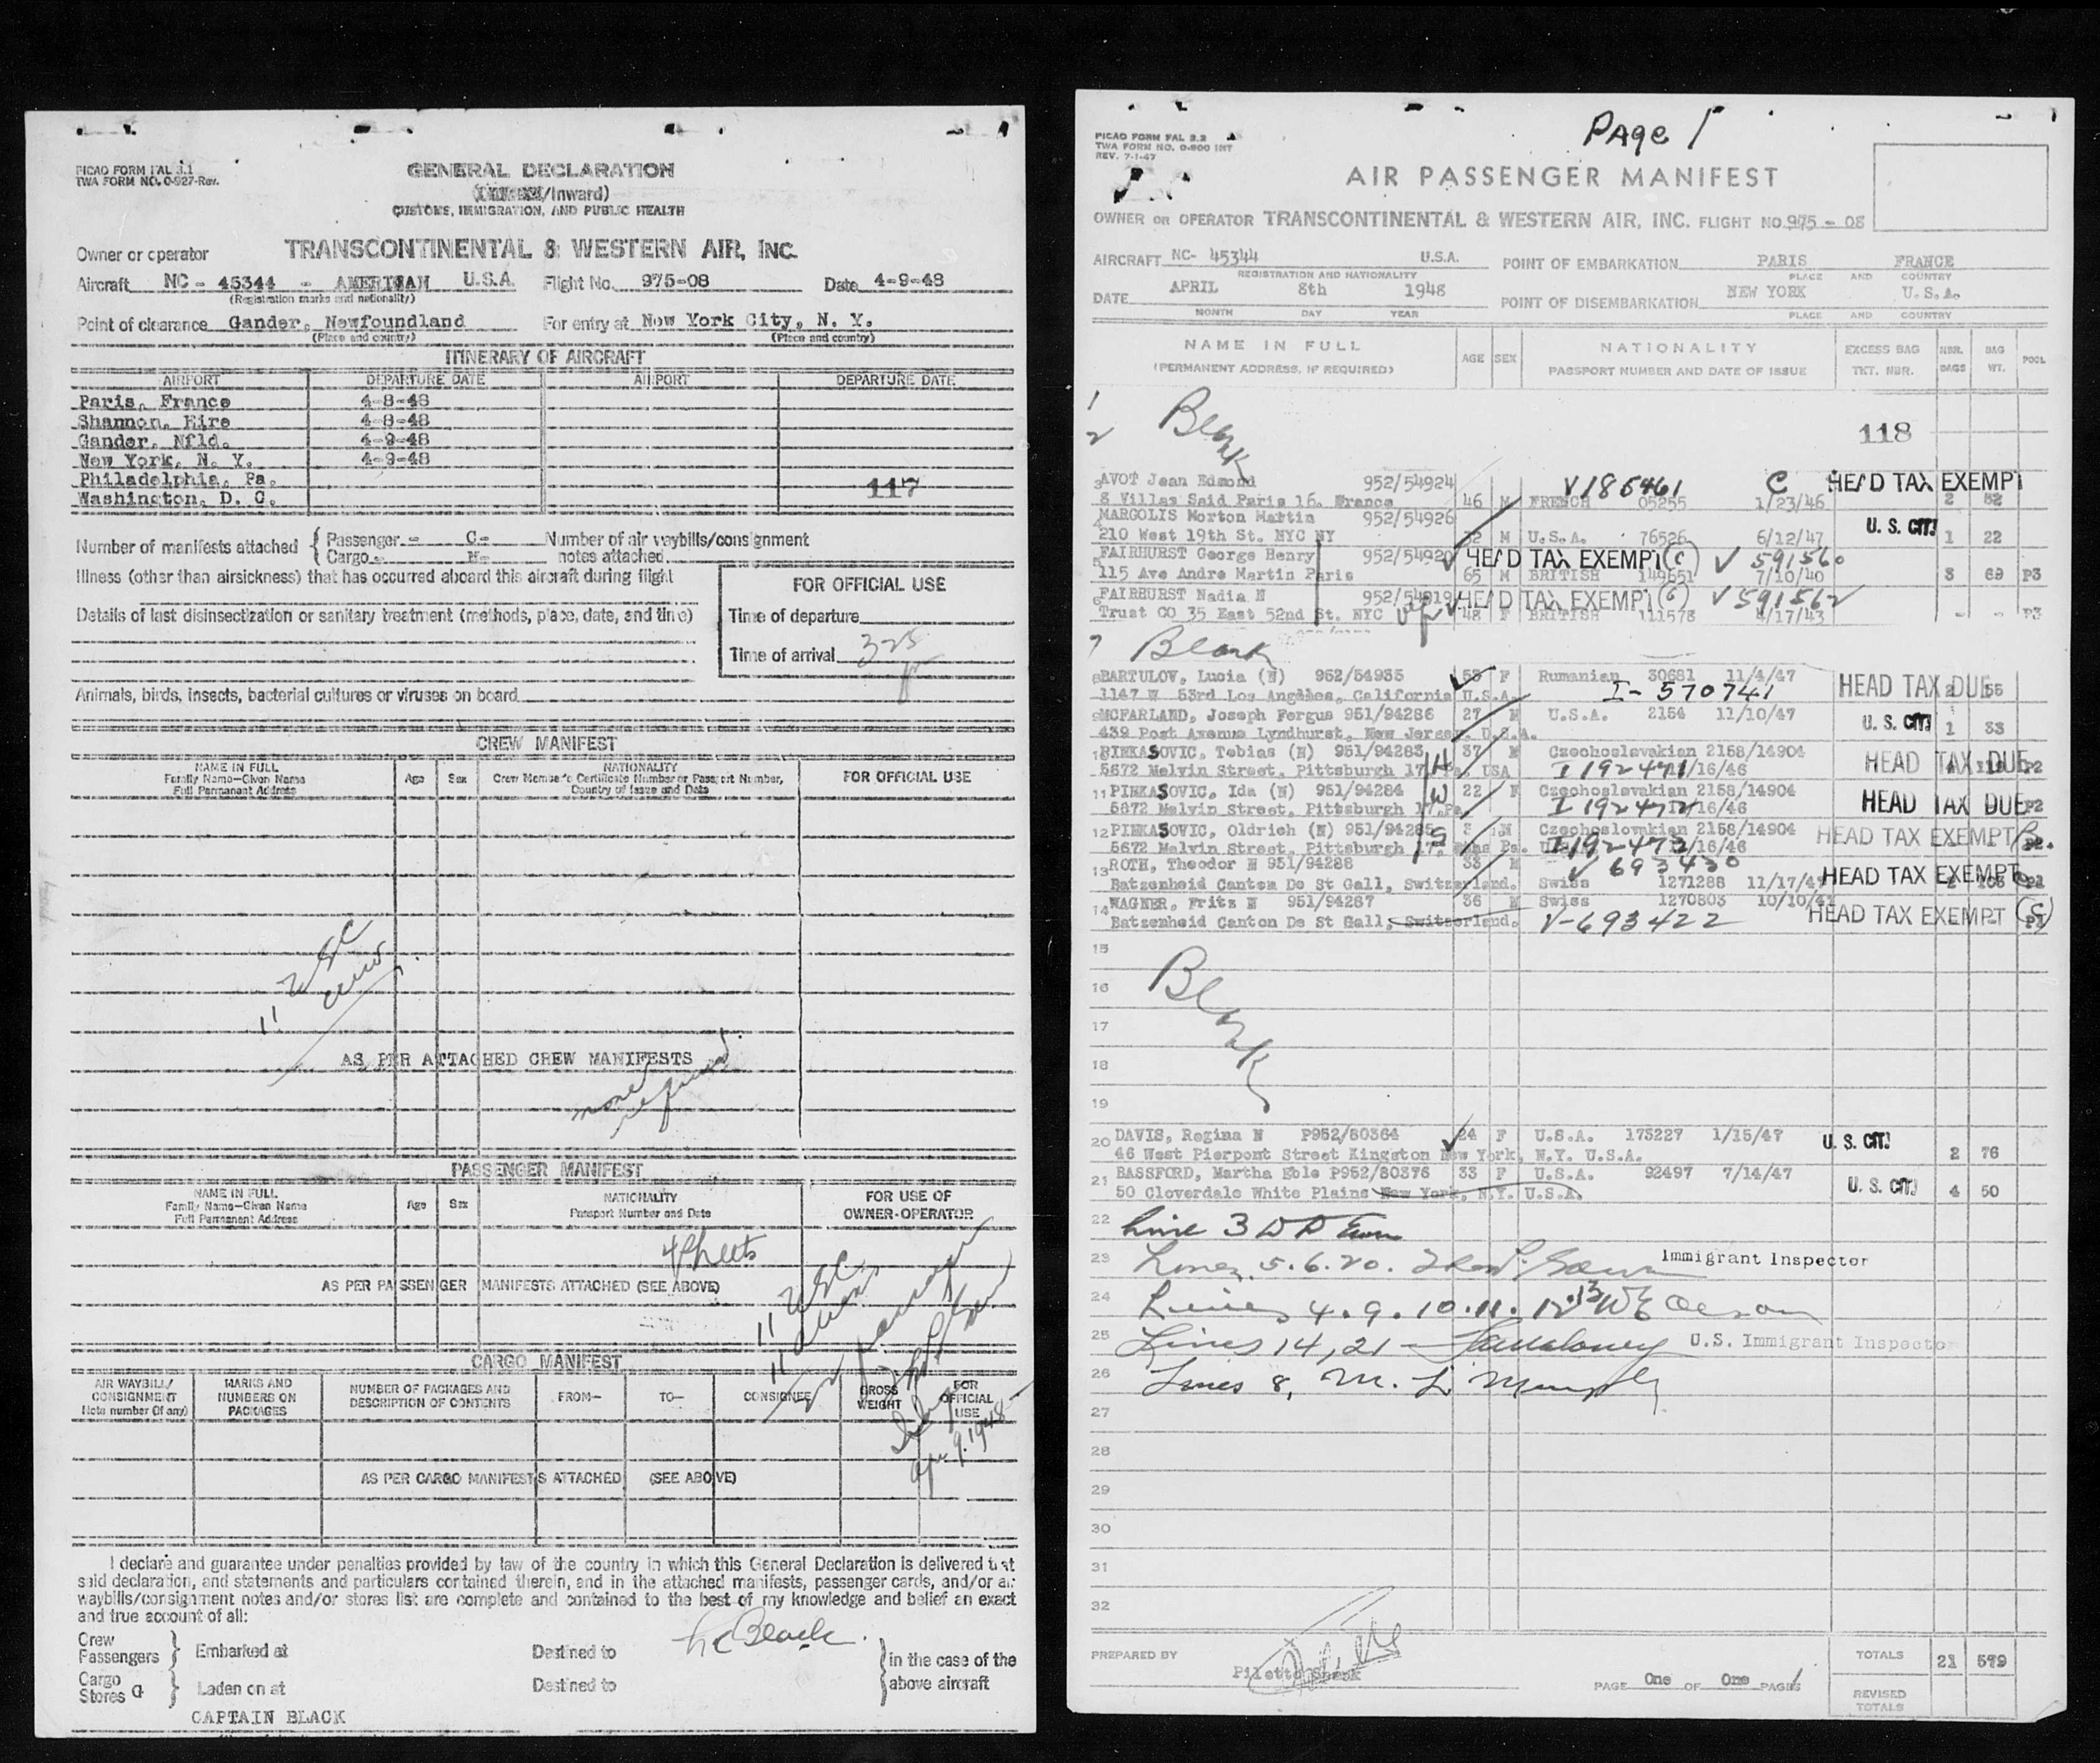 PICAO FORM FAL 3.1
TWA FORM NO. 0-927-Rev.
GENERAL DECLARATION
/Inward)
CUSTOMS, IMMIGRATION, AND PUBLIC HEALTH
Owner or operator TRANSCONTINENTAL & WESTERN AIR, INC.
Aircraft NC - 45344 - AMERICAN U.S.A. Flight No. 975-08 Date 4-9-48
(Registration marks and nationality)
Point of clearance Gander, Newfoundland For entry at New York City, N. Y.
(Place and country) (Place and country)
ITINERARY OF AIRCRAFT
AIRPORT DEPARTURE DATE AIRPORT DEPARTURE DATE
Paris, France 4-8-48
Shannon, Eire 4-8-48
Gander, Nfld. 4-9-48
New York, N. Y. 4-9-48
Philadelphia, Pa.
Washington, D. C. 117
Number of manifests attached { Passenger - C- Number of air waybills/consignment
Cargo - M- notes attached
Illness (other than airsickness) that has occurred aboard this aircraft during flight
Details of last disinsectization or sanitary treatment (methods, place, date, and time)
FOR OFFICIAL USE
Time of departure
Time of arrival 325 p
Animals, birds, insects, bacterial cultures or viruses on board
CREW MANIFEST
NAME IN FULL
Family Name—Given Name
Full Permanent Address
Age Sex
NATIONALITY
Crew Member's Certificate Number or Passport Number,
Country of Issue and Date
FOR OFFICIAL USE
11 USC
AS PER ATTACHED CREW MANIFESTS
PASSENGER MANIFEST
NAME IN FULL
Family Name—Given Name
Full Permanent Address
Age Sex
NATIONALITY
Passport Number and Date
FOR USE OF
OWNER-OPERATOR
4 sheets
AS PER PASSENGER MANIFESTS ATTACHED (SEE ABOVE)
11 USC
11 aliens
CARGO MANIFEST
AIR WAYBILL/
CONSIGNMENT
Note number (if any)
MARKS AND
NUMBERS ON
PACKAGES
NUMBER OF PACKAGES AND
DESCRIPTION OF CONTENTS
FROM— TO— CONSIGNEE
GROSS
WEIGHT
FOR
OFFICIAL
USE
Apr 9. 1948
AS PER CARGO MANIFESTS ATTACHED (SEE ABOVE)
I declare and guarantee under penalties provided by law of the country in which this General Declaration is delivered that
said declaration, and statements and particulars contained therein, and in the attached manifests, passenger cards, and/or air
waybills/consignment notes and/or stores list are complete and contained to the best of my knowledge and belief an exact
and true account of all:
Crew
Passengers } Embarked at Destined to
Cargo
Stores } Laden on at Destined to
in the case of the
above aircraft
CAPTAIN BLACK
Page 1
PICAO FORM FAL 3.2
TWA FORM NO. 0-800 INT
REV. 7-1-47
AIR PASSENGER MANIFEST
OWNER OR OPERATOR TRANSCONTINENTAL & WESTERN AIR, INC. FLIGHT NO. 975 - 08
AIRCRAFT NC- 45344 U.S.A. POINT OF EMBARKATION PARIS FRANCE
REGISTRATION AND NATIONALITY PLACE AND COUNTRY
DATE APRIL 8th 1948 POINT OF DISEMBARKATION NEW YORK U.S.A.
MONTH DAY YEAR PLACE AND COUNTRY
NAME IN FULL
(PERMANENT ADDRESS, IF REQUIRED)
AGE SEX
NATIONALITY
PASSPORT NUMBER AND DATE OF ISSUE
EXCESS BAG
TKT. NBR.
NBR.
BAGS
BAG
WT.
POOL
1
2 Blank 118
3 AVOT Jean Edmond 952/54924 V185461 C HEAD TAX EXEMPT
8 Villas Said Paris 16. France 46 M FRENCH 05255 1/23/46 2 52
4 MARGOLIS Morton Martin 952/54926 U. S. CIT.
210 West 19th St. NYC NY 32 M U.S.A. 76526 6/12/47 1 22
5 FAIRHURST George Henry 952/54920 HEAD TAX EXEMPT (C) V 591560
115 Ave Andre Martin Paris 65 M BRITISH 149651 7/10/40 3 69 P3
6 FAIRHURST Nadia N 952/54919 HEAD TAX EXEMPT (C) V591562
Trust CO 35 East 52nd St. NYC 48 F BRITISH 111578 4/17/43 - - P3
7 Blank
8 BARTULOV, Lucia (N) 952/54935 55 F Rumanian 30681 11/4/47 HEAD TAX DUE 2 55
1147 W 53rd Los Angeles, California U.S.A. I-570741
9 MCFARLAND, Joseph Fergus 951/94286 27 M U.S.A. 2154 11/10/47 U. S. CIT. 1 33
439 Post Avenue Lyndhurst, New Jersey, U.S.A.
10 PINKASOVIC, Tobias (N) 951/94283 H 37 M Czechoslovakian 2158/14904 HEAD TAX DUE P2
5672 Melvin Street, Pittsburgh 17, Pa. USA I 192471 /16/46
11 PINKASOVIC, Ida (N) 951/94284 W 22 F Czechoslovakian 2158/14904 HEAD TAX DUE P2
5672 Melvin Street, Pittsburgh 17, Pa. I 192472 /16/46
12 PINKASOVIC, Oldrich (N) 951/94285 S 3 M Czechoslovakian 2158/14904 HEAD TAX EXEMPT
5672 Melvin Street, Pittsburgh 17, Pa. I 192473 /16/46
13 ROTH, Theodor N 951/94288 33 M V 693430
Batzenheid Canton De St Gall, Switzerland. Swiss 1271288 11/17/47 HEAD TAX EXEMPT
14 WAGNER, Fritz N 951/94287 36 M Swiss 1270803 10/10/47 HEAD TAX EXEMPT (C)
Batzenheid Canton De St Gall, Switzerland. V-693422
15
16 Blank
17
18
19
20 DAVIS, Regina N P952/80364 24 F U.S.A. 173227 1/15/47 U. S. CIT.
46 West Pierpont Street Kingston New York, N.Y. U.S.A. 2 76
21 BASSFORD, Martha Eble P952/80376 33 F U.S.A. 92497 7/14/47 U. S. CIT.
50 Cloverdale White Plains New York, N.Y. U.S.A. 4 50
22 Line 3
23 Lines 5.6.20. Immigrant Inspector
24 Lines 4.9.10.11.12.13
25 Lines 14, 21 - U.S. Immigrant Inspector
26 Lines 8, M. L. Murphy
27
28
29
30
31
32
PREPARED BY TOTALS 21 579
PAGE One OF One PAGES
REVISED
TOTALS